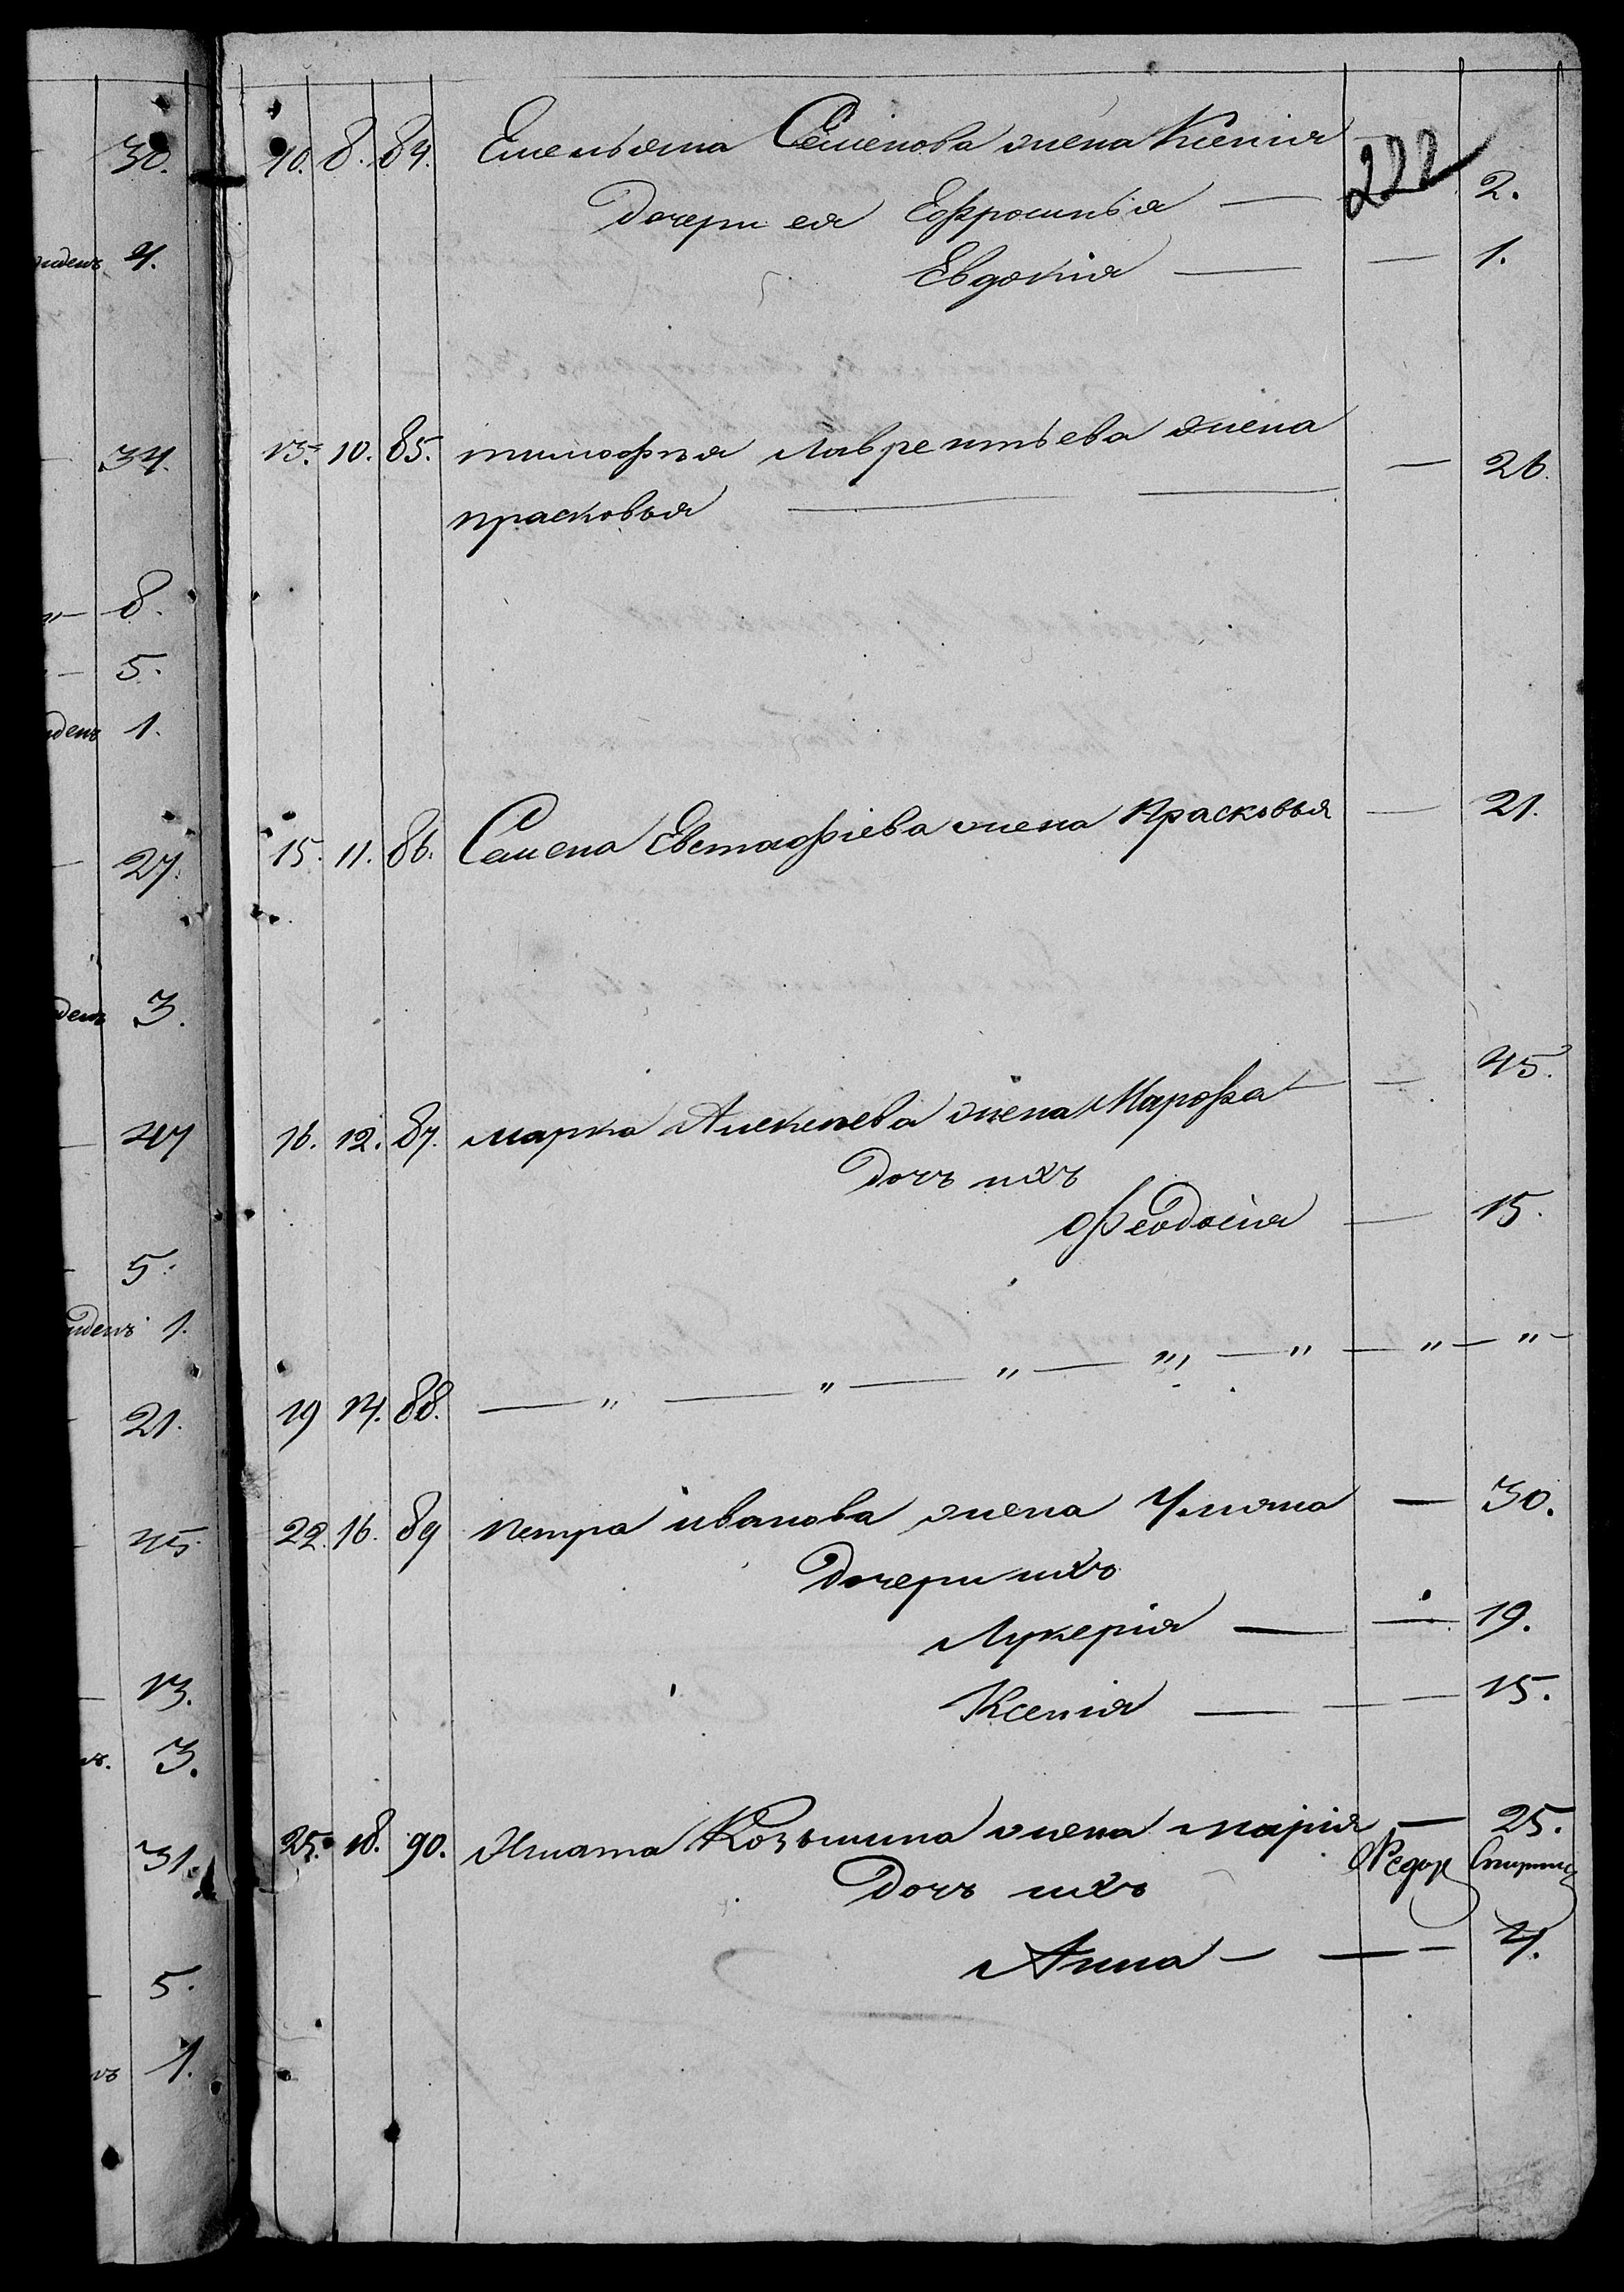 222
10. 8. 84. Емельяна Семенова жена Ксения —
Дочери ея Ефросинья — 2.
Евдокия — — 1.
13. 10. 85. тимофея Лаврентьева жена — 26.
прасковья —
15. 11. 86. Семена Евстафіева жена Прасковья — 21.
16. 12. 87. марка Алексеева жена Марфа — — 45.
Дочь ихъ
Феодосія — 15.
19 14. 88. — " — " — " — " — " — " — " —
22. 16. 89 петра иванова жена Улияна — 30.
Дочери ихъ
Лукерія — — 19.
Ксенія — — — 15.
25. 18. 90. Игната Козьмина жена марія — 25.
Дочь ихъ
Анна — — — 4.
30.
4.
34.
8.
5.
1.
27.
3.
47
5.
1.
21.
45.
13.
3.
31.
5.
1.